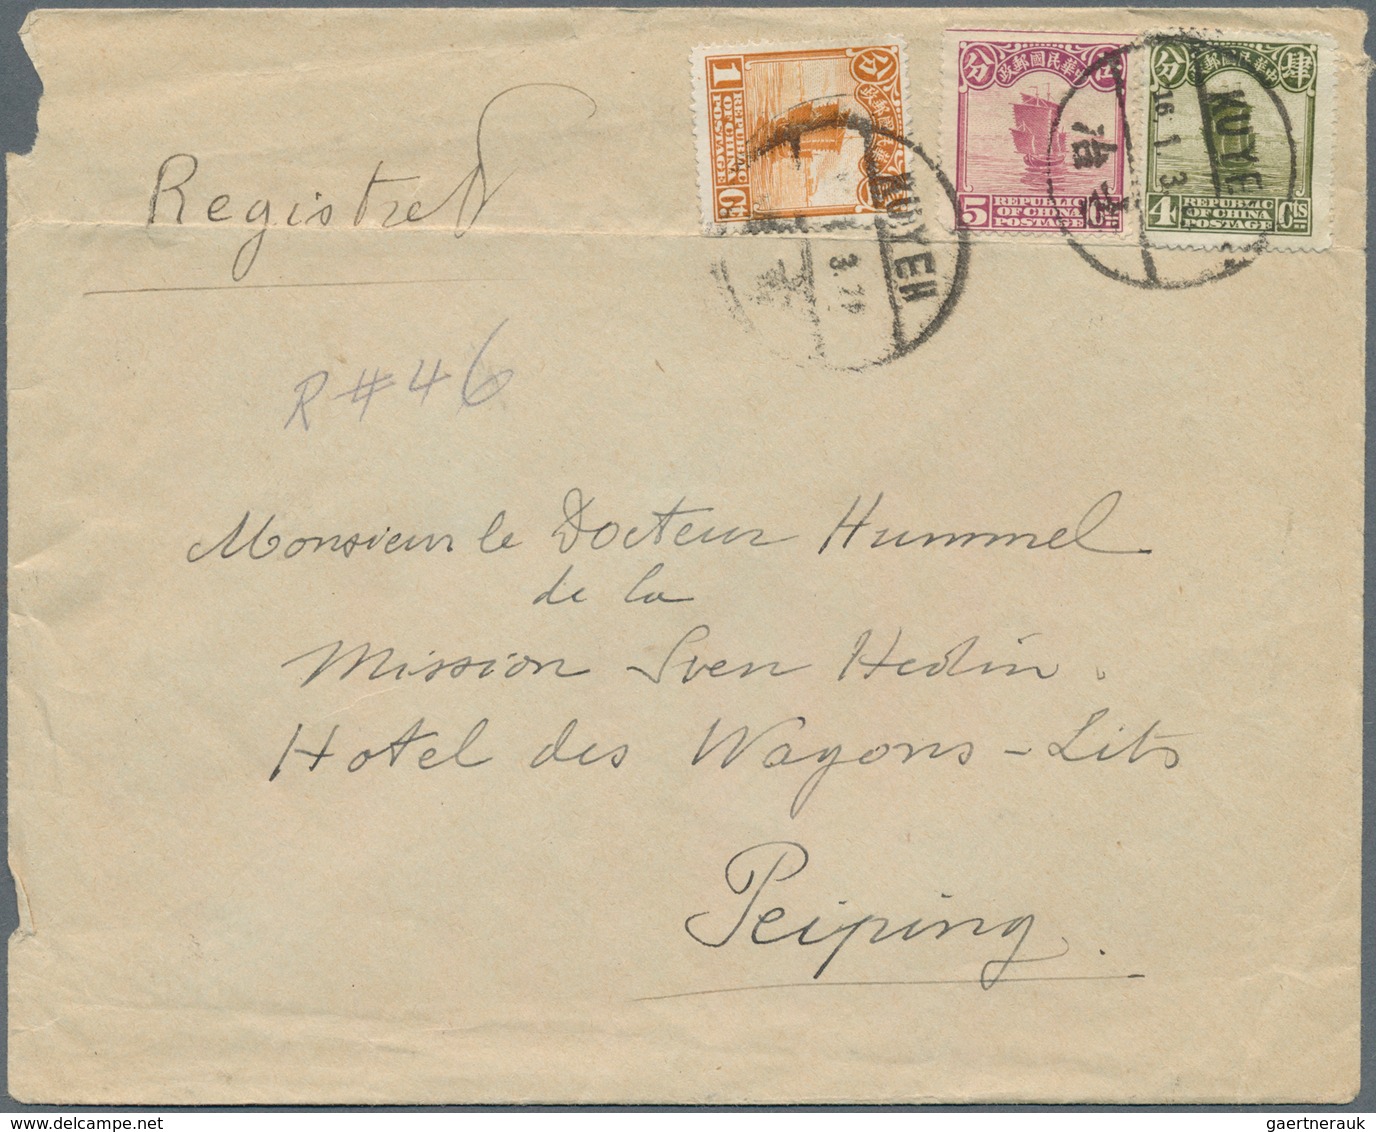 Registred
R # 46
1 分
中華民國郵政
REPUBLIC
OF CHINA
POSTAGE
分 伍
中華民國郵政
5 REPUBLIC
OF CHINA
POSTAGE
分 肆
中華民國郵政
4 REPUBLIC Cts
OF CHINA
POSTAGE
KUYEH
KUYE
16. 1. 3
Monsieur le Docteur Hummel
de la
Mission Sven Hedin.
Hotel des Wagons-Lits
Peiping.
gaertnerauk